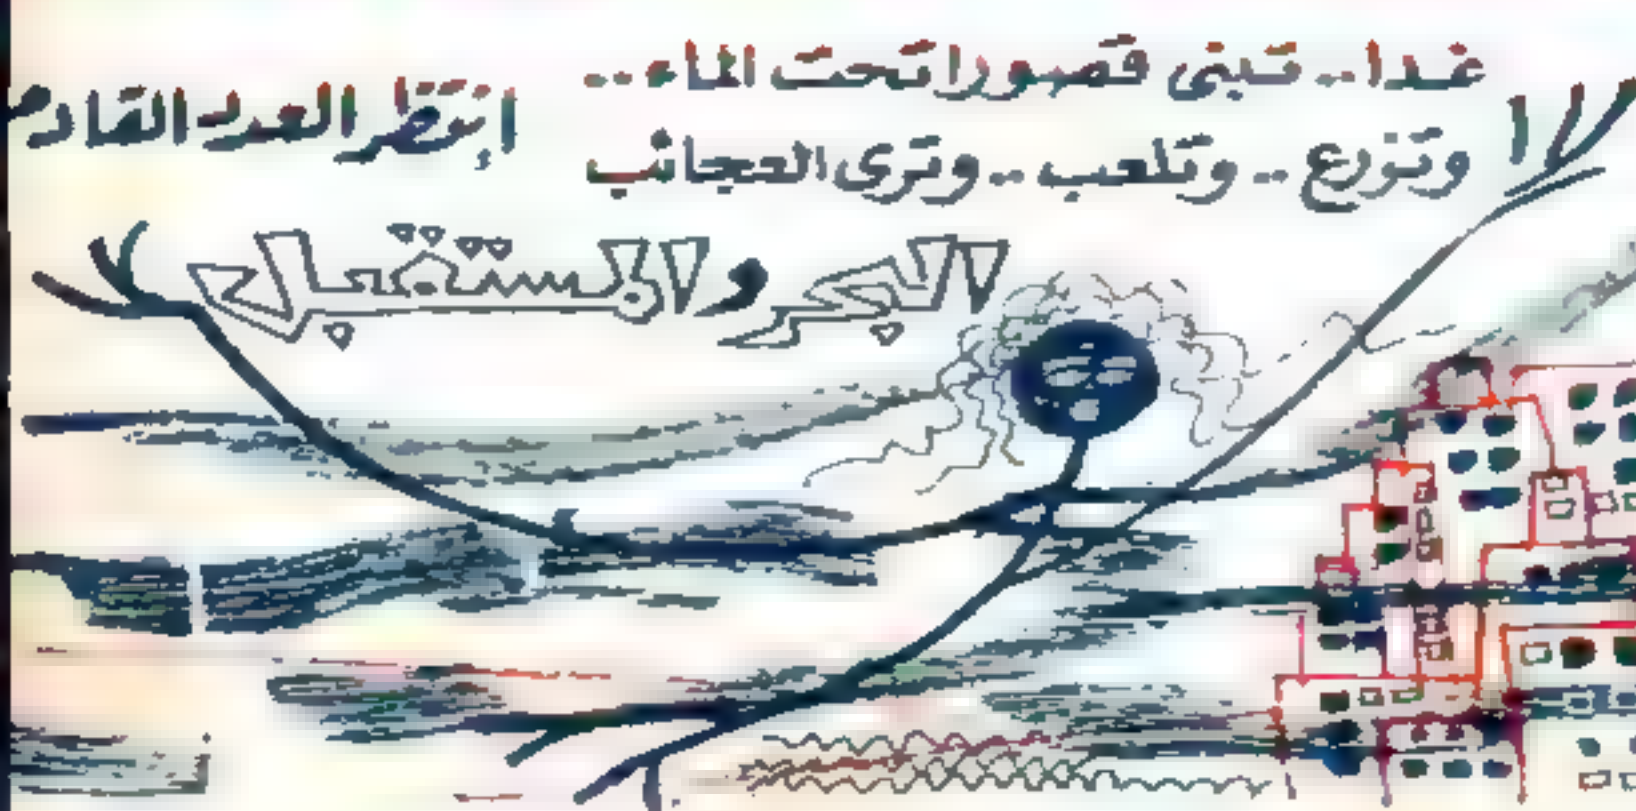 غدا.. تبنى قصورا تحت الماء..
وتزرع.. وتلعب.. وترى العجائب
انتظر العدد القادم
البحر والمستقبل